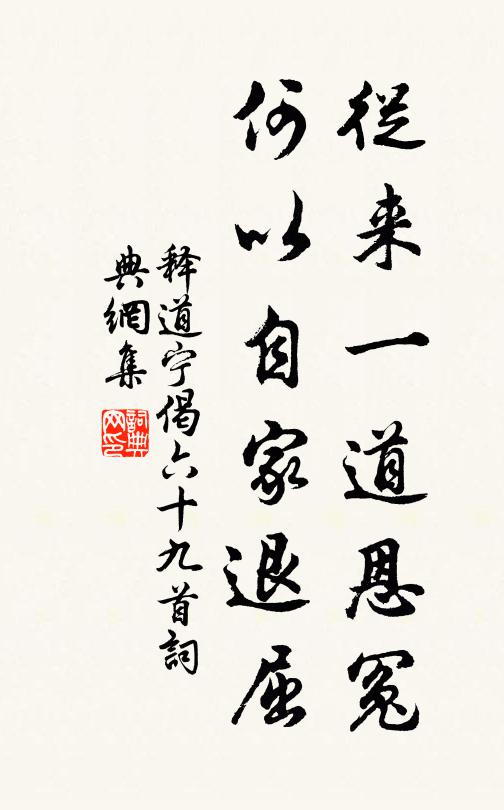 從来一道恩冤
何以自家退屈
释道宁偈六十九首詞
典網集
詞典网印